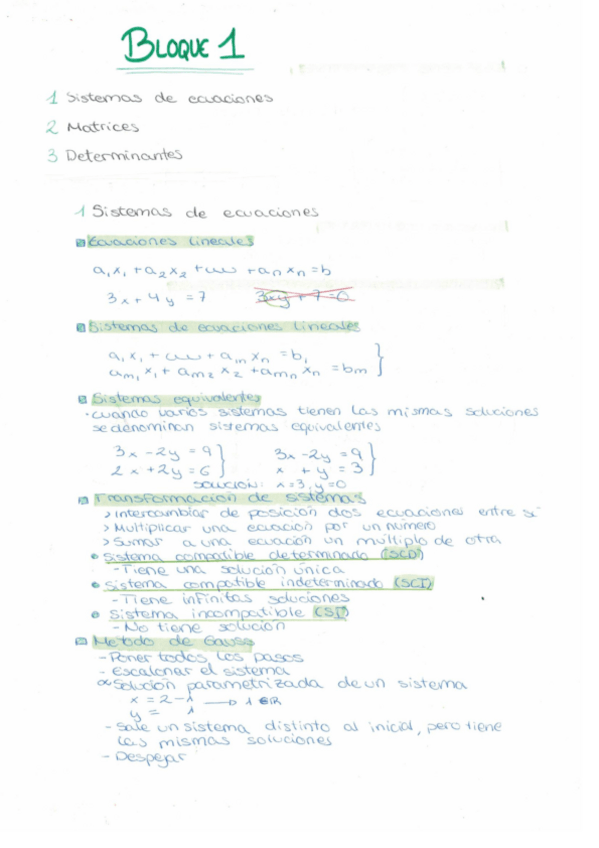 BLOQUE 1
1 Sistemas de ecuaciones
2 Matrices
3 Determinantes
1 Sistemas de ecuaciones
Ecuaciones lineales
a₁x₁ + a₂x₂ + ... + aₙxₙ = b
3x + 4y = 7    3xy + 7 = 0
Sistemas de ecuaciones lineales
a₁x₁ + ... + aₘxₙ = b₁
aₘ₁x₁ + aₘ₂x₂ + aₘₙxₙ = bm
Sistemas equivalentes
· cuando varios sistemas tienen las mismas soluciones
se denominan sistemas equivalentes
3x - 2y = 9    3x - 2y = 9
2x + 2y = 6    x + y = 3
solución: x=3, y=0
Transformación de sistemas
> Intercambiar de posición dos ecuaciones entre sí
> Multiplicar una ecuación por un número
> Sumar a una ecuación un múltiplo de otra
• Sistema compatible determinado (SCD)
- Tiene una solución única
• Sistema compatible indeterminado (SCI)
- Tiene infinitas soluciones
• Sistema incompatible (SI)
- No tiene solución
Metodo de Gauss
- Poner todos los pasos
- Escalonar el sistema
Solución parametrizada de un sistema
x = 2 - λ → λ ∈ R
y = λ
- Sale un sistema distinto al inicial, pero tiene
las mismas soluciones
- Despejar